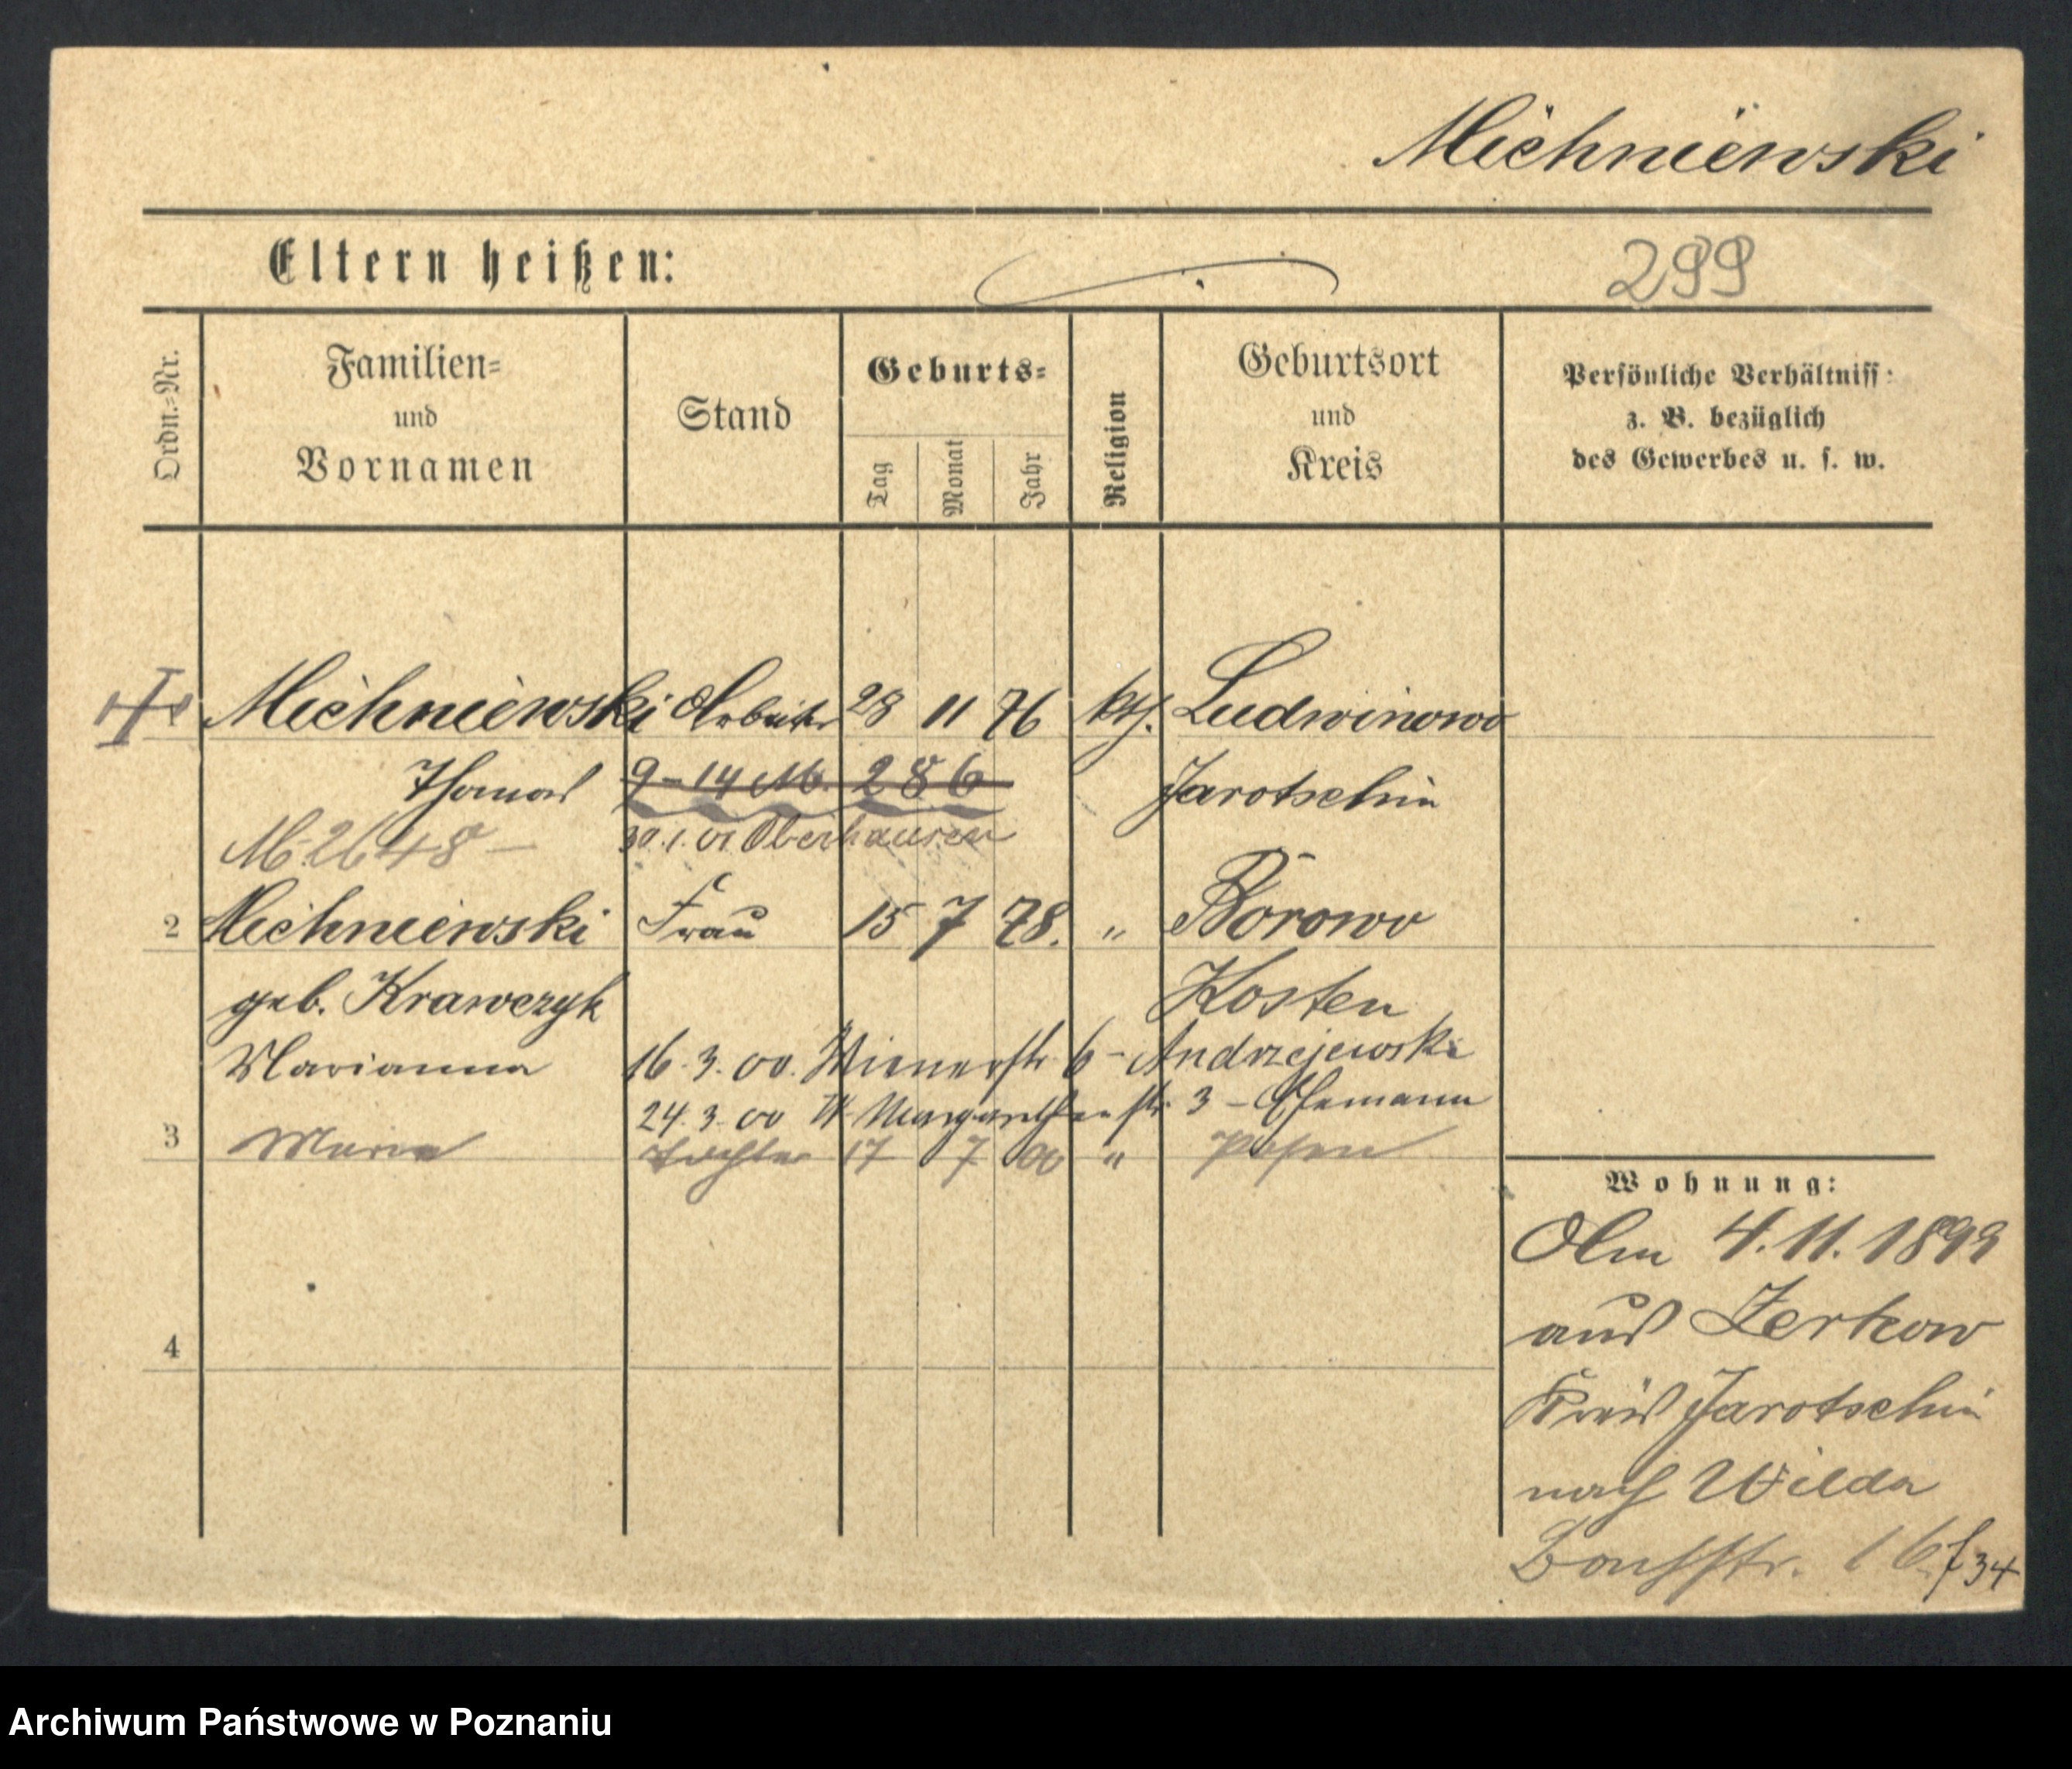 Michniewski
Eltern heißen:
299
Ordn.-Nr.
Familien-
und
Vornamen
Stand
Geburts-
Tag
Monat
Jahr
Religion
Geburtsort
und
Kreis
Persönliche Verhältniss:
z. B. bezüglich
des Gewerbes u. s. w.
Michniewski Arbeiter 28 11 76 kth. Ludwinowo
Thomas 9-14 M. 286 Jarotschin
M 2648 - 30.1.01 Oberhausen
2 Michniewski Frau 15 7 78. " Borowo
geb. Krawczyk Kosten
Marianna 16.3.00. Wienerstr 6 - Andrzejewski
24.3.00 W Margarethenstr. 3 - Ehemann
3 Maria Tochter 17 7 00 " Posen
4
Wohnung:
Am 4.11.1899
aus Zerkow
Kreis Jarotschin
nach Wilda
16 f 34
Archiwum Państwowe w Poznaniu